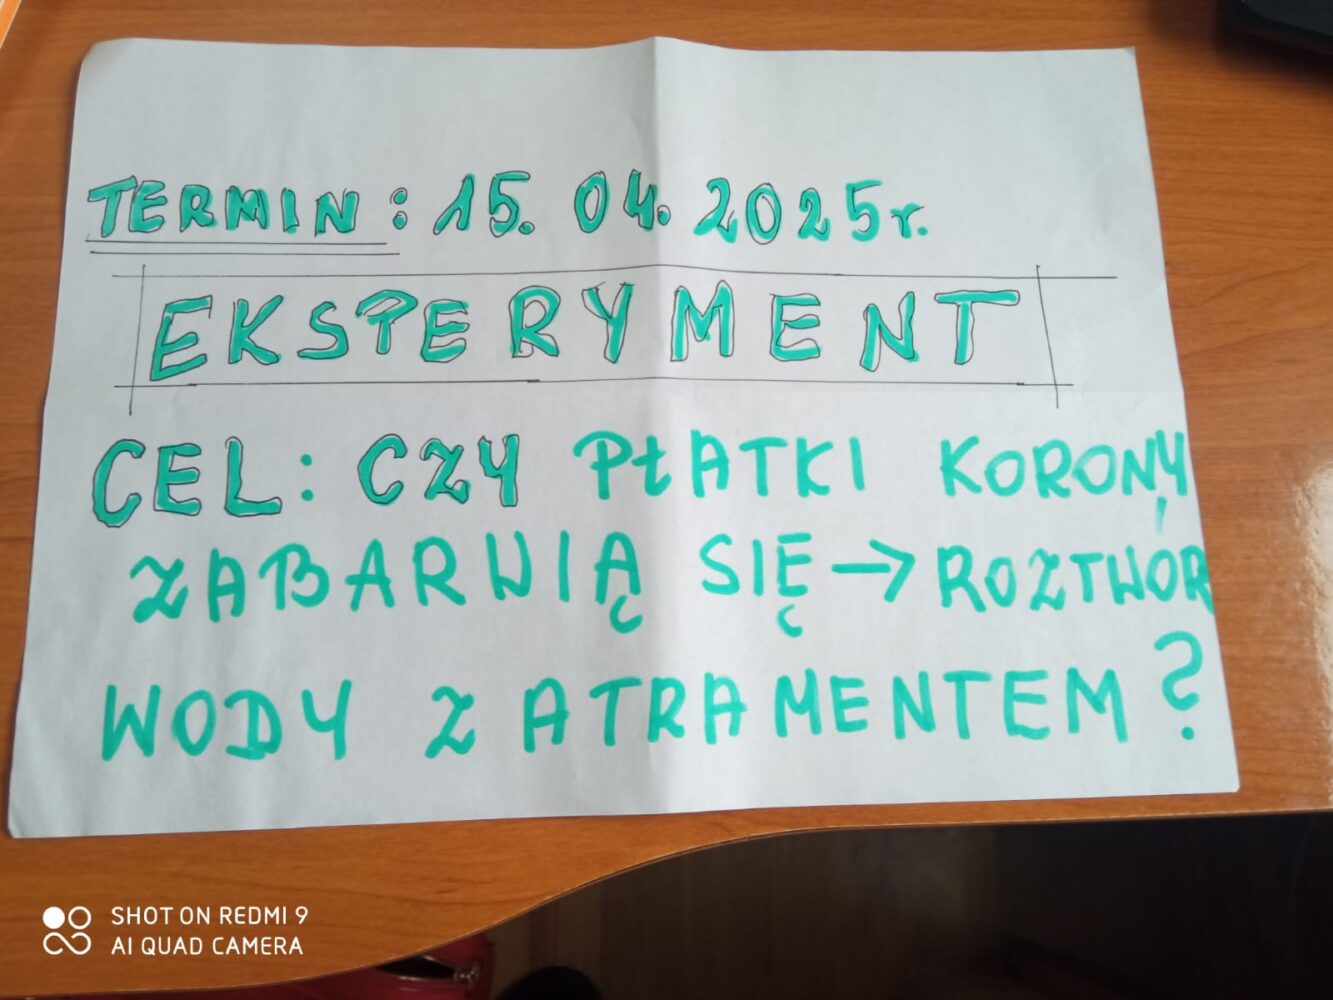 TERMIN: 15. 04. 2025r.
EKSPERYMENT
CEL: CZY PŁATKI KORONY
ZABARWIĄ SIĘ → ROZTWÓR
WODY Z ATRAMENTEM?
SHOT ON REDMI 9
AI QUAD CAMERA